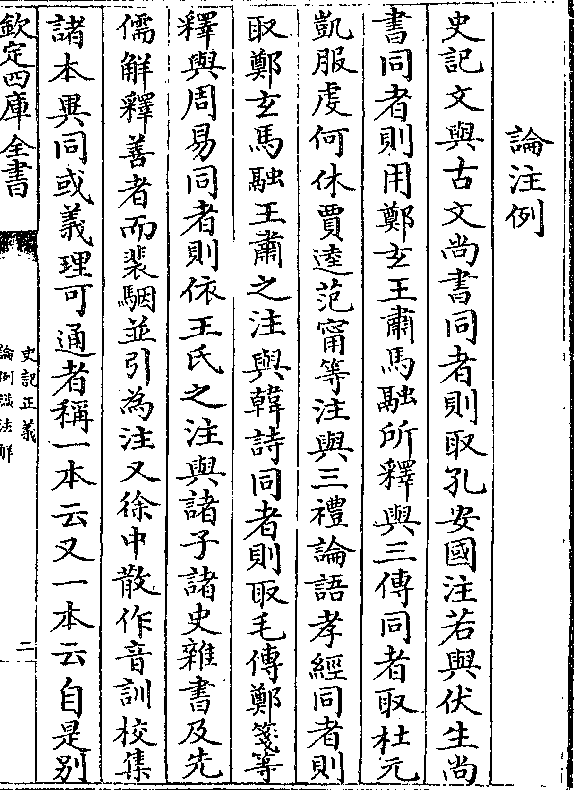 論注例
史記文與古文尚書同者則取孔安國注若與伏生尚
書同者則用鄭玄王肅馬融所釋與三傳同者取杜元
凱服虔何休賈逵范甯等注與三禮論語孝經同者則
取鄭玄馬融王肅之注與韓詩同者則取毛傳鄭箋等
釋與周易同者則依王氏之注與諸子諸史雜書及先
儒解釋善者而裴駰並引為注又徐中散作音訓校集
諸本異同或義理可通者稱一本云又一本云自是別
欽定四庫全書
史記正義
論例謚法解
二